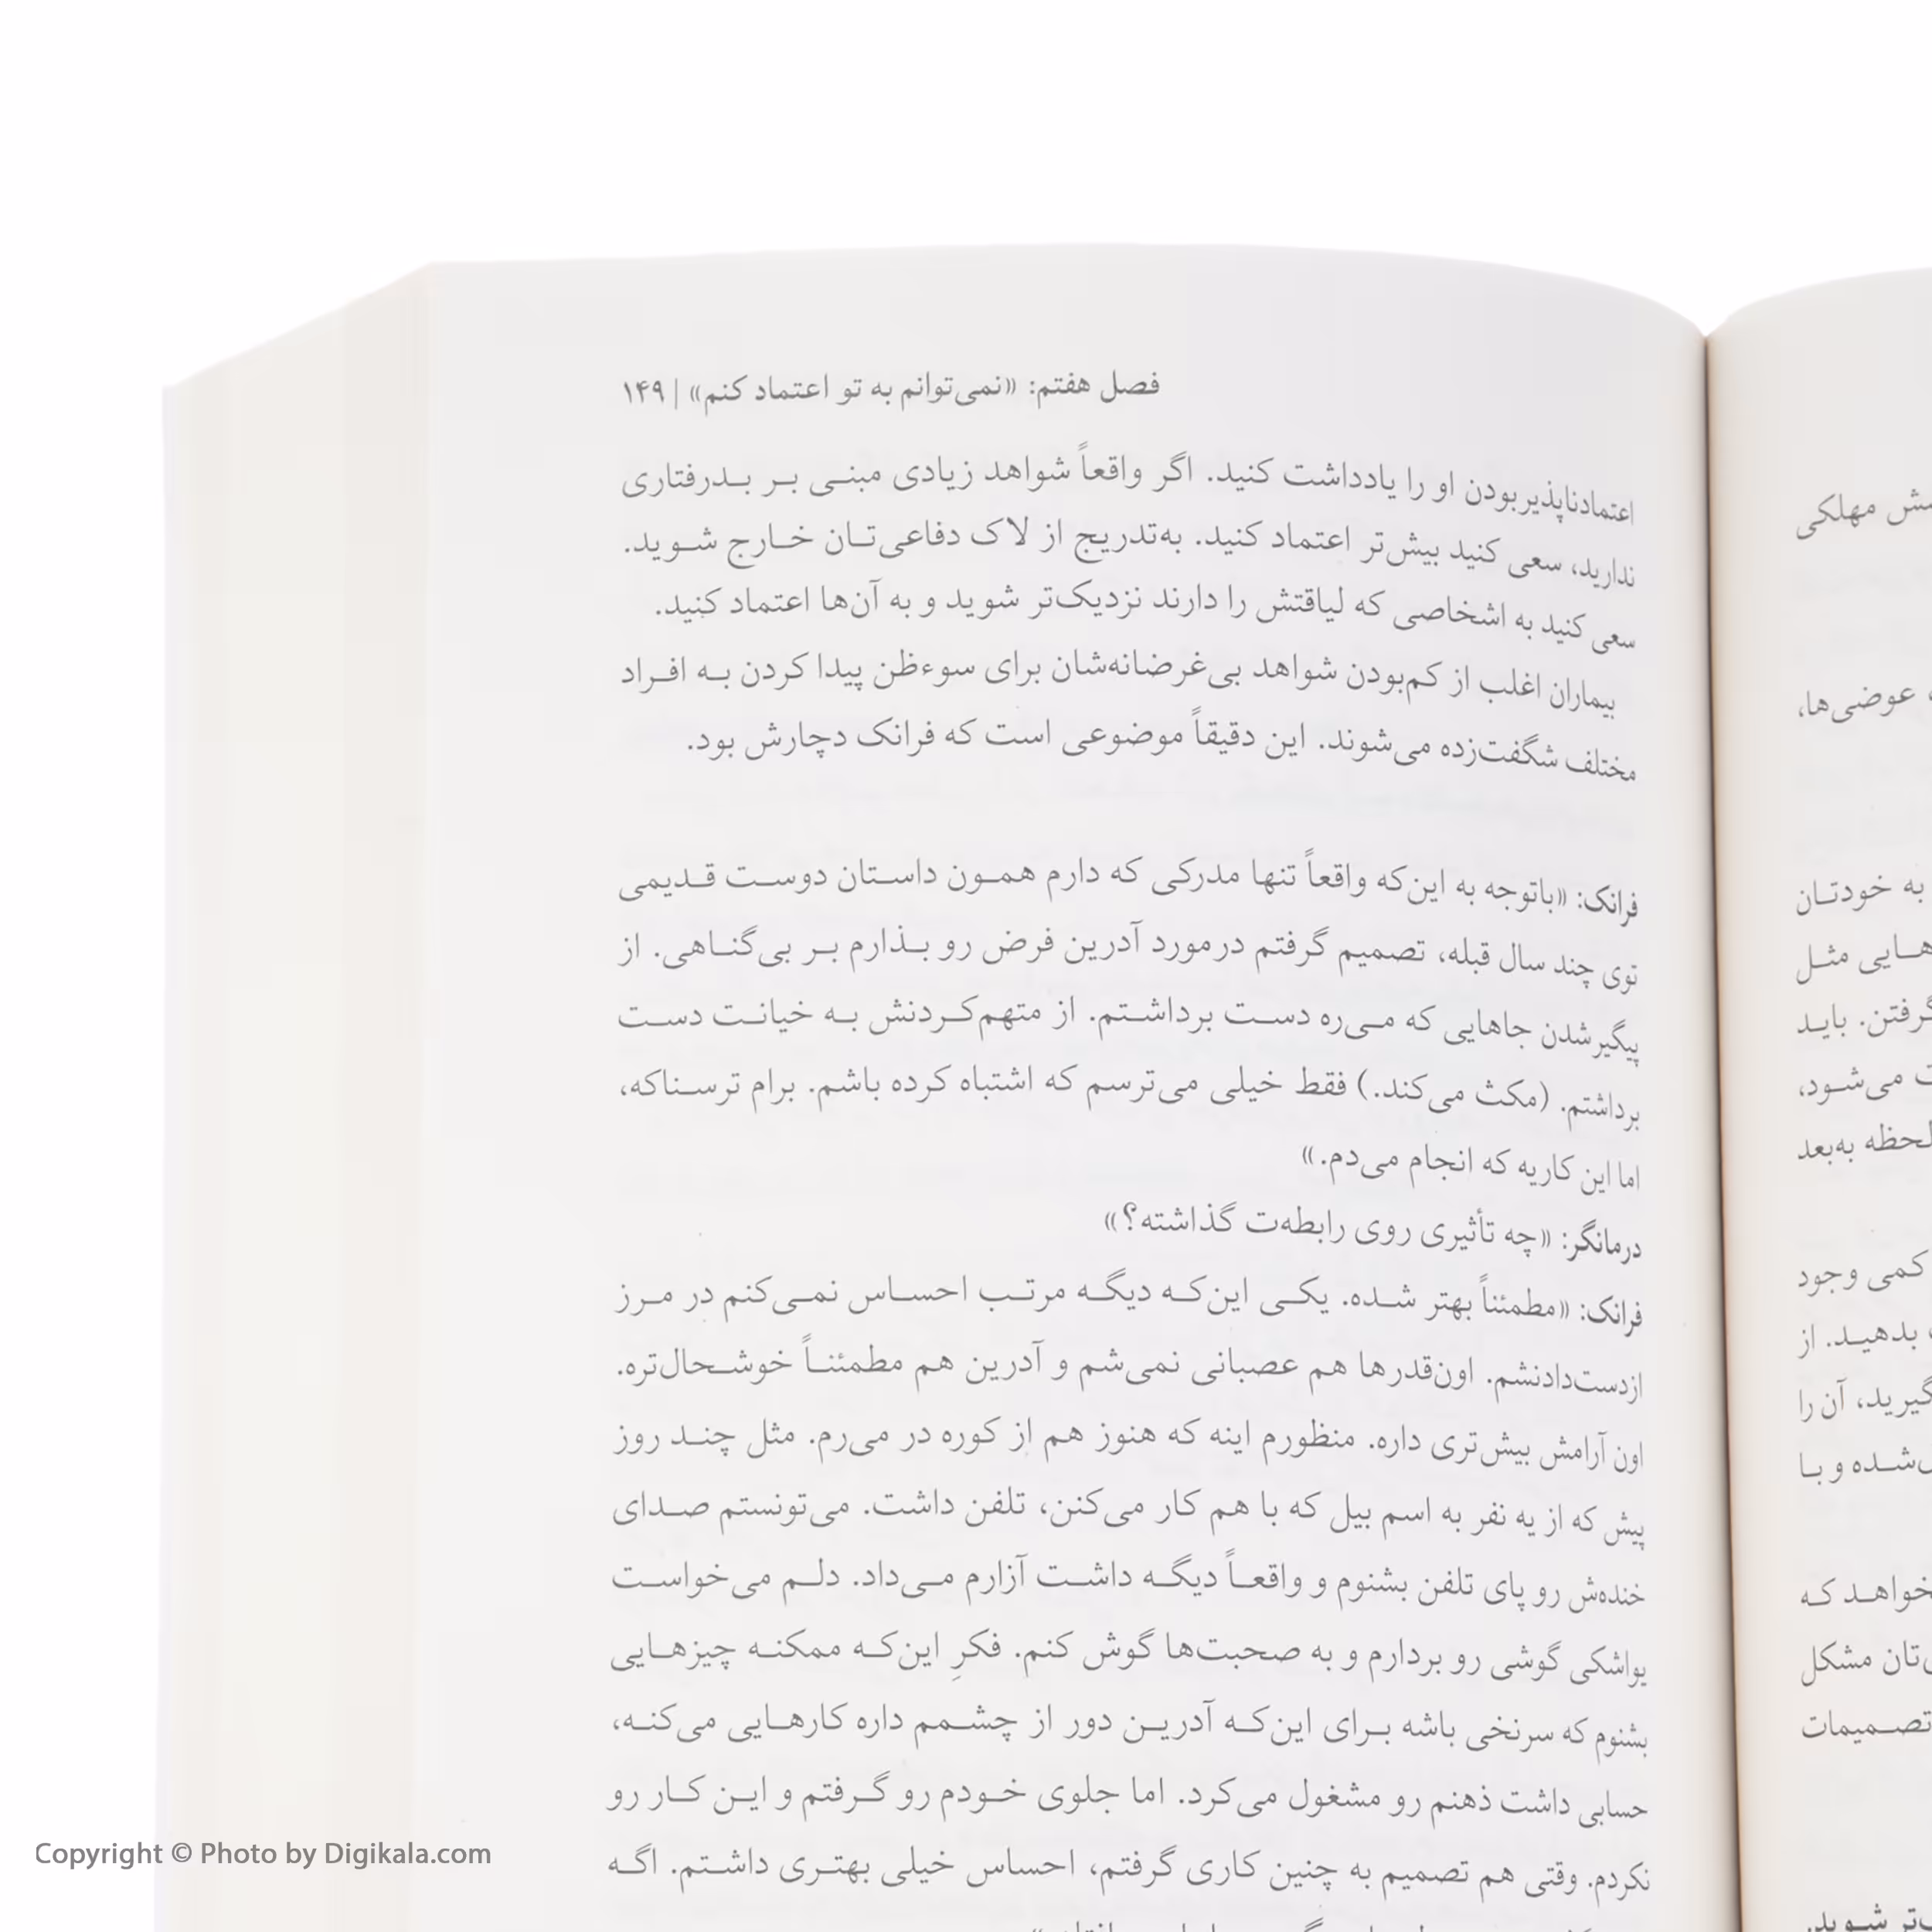 فصل هفتم: «نمی‌توانم به تو اعتماد کنم» | ۱۴۹
اعتمادناپذیربودن او را یادداشت کنید. اگر واقعاً شواهد زیادی مبنی بر بدرفتاری
ندارید، سعی کنید بیش‌تر اعتماد کنید. به‌تدریج از لاک دفاعی‌تان خارج شوید.
سعی کنید به اشخاصی که لیاقتش را دارند نزدیک‌تر شوید و به آن‌ها اعتماد کنید.
بیماران اغلب از کم‌بودن شواهد بی‌غرضانه‌شان برای سوءظن پیدا کردن به افراد
مختلف شگفت‌زده می‌شوند. این دقیقاً موضوعی است که فرانک دچارش بود.
فرانک: «باتوجه به این‌که واقعاً تنها مدرکی که دارم همون داستان دوست قدیمی
توی چند سال قبله، تصمیم گرفتم درمورد آدرین فرض رو بذارم بر بی‌گناهی. از
پیگیرشدن جاهایی که می‌ره دست برداشتم. از متهم‌کردنش به خیانت دست
برداشتم. (مکث می‌کند.) فقط خیلی می‌ترسم که اشتباه کرده باشم. برام ترسناکه،
اما این کاریه که انجام می‌دم.»
درمانگر: «چه تأثیری روی رابطه‌ت گذاشته؟»
فرانک: «مطمئناً بهتر شده. یکی این‌که دیگه مرتب احساس نمی‌کنم در مرز
ازدست‌دادنشم. اون‌قدرها هم عصبانی نمی‌شم و آدرین هم مطمئناً خوشحال‌تره.
اون آرامش بیش‌تری داره. منظورم اینه که هنوز هم از کوره در می‌رم. مثل چند روز
پیش که از یه نفر به اسم بیل که با هم کار می‌کنن، تلفن داشت. می‌تونستم صدای
خنده‌ش رو پای تلفن بشنوم و واقعاً دیگه داشت آزارم می‌داد. دلم می‌خواست
یواشکی گوشی رو بردارم و به صحبت‌ها گوش کنم. فکرِ این‌که ممکنه چیزهایی
بشنوم که سرنخی باشه برای این‌که آدرین دور از چشمم داره کارهایی می‌کنه،
حسابی داشت ذهنم رو مشغول می‌کرد. اما جلوی خودم رو گرفتم و این کار رو
نکردم. وقتی هم تصمیم به چنین کاری گرفتم، احساس خیلی بهتری داشتم. اگه
مهلکی
عوضی‌ها،
به خودتان
مثل
گرفتن. باید
می‌شود،
لحظه به‌بعد
کمی وجود
بدهید. از
آن را
و با
که
مشکل
تصمیمات
شوید.
Copyright © Photo by Digikala.com